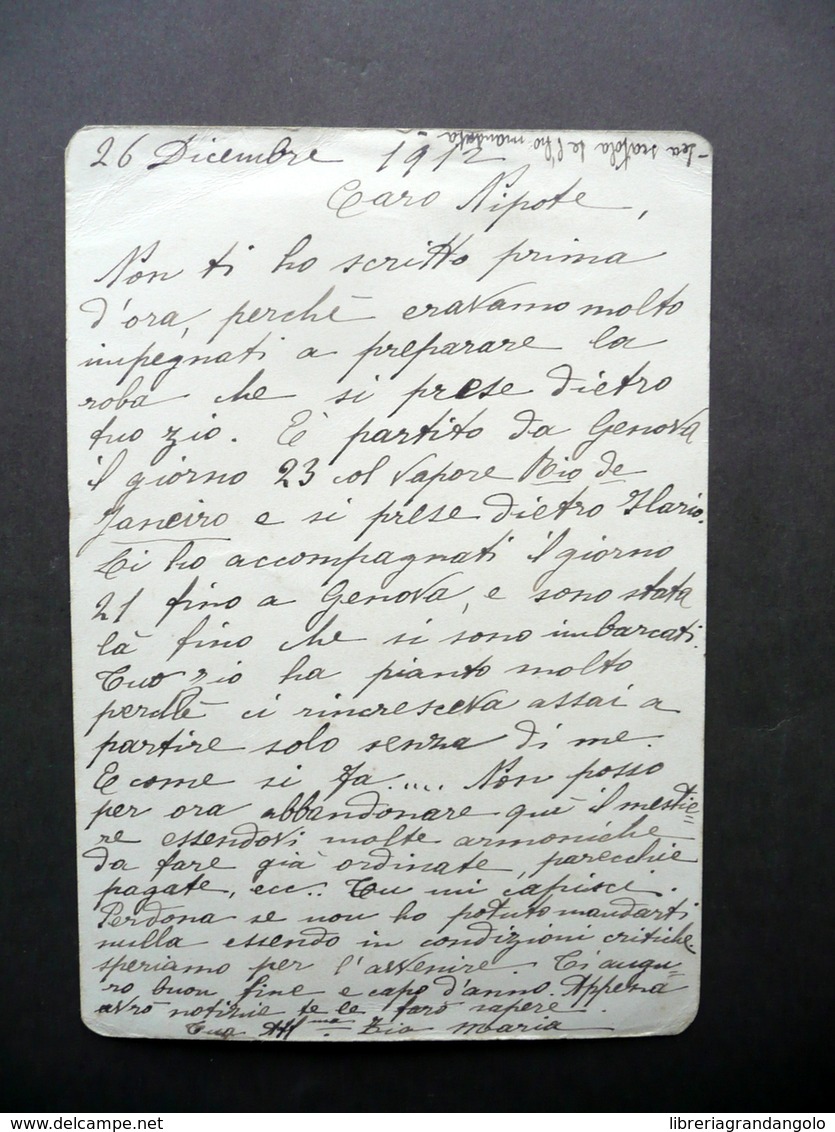 -La scatola te l'ho mandata
26 Dicembre 1912
Caro Nipote,
Non ti ho scritto prima
d'ora, perchè eravamo molto
impegnati a preparare la
roba che si prese dietro
tuo zio. È partito da Genova
il giorno 23 col vapore Rio de
Janeiro e si prese dietro Ilario.
Li ho accompagnati il giorno
21 fino a Genova, e sono stata
là fino che si sono imbarcati.
Tuo zio ha pianto molto
perchè ci rincresceva assai a
partire solo senza di me.
E come si fa..... Non posso
per ora abbandonare quì il mestie=
re essendovi molte armoniche
da fare già ordinate, parecchie
pagate, ecc.. Tu mi capisci.
Perdona se non ho potuto mandarti
nulla essendo in condizioni critiche
speriamo per l'avvenire. Ti augu=
ro buon fine e capo d'anno. Appena
avrò notizie te le farò sapere.
Tua Aff.ma Zia Maria
www.delcampe.net
libreriagrandangolo